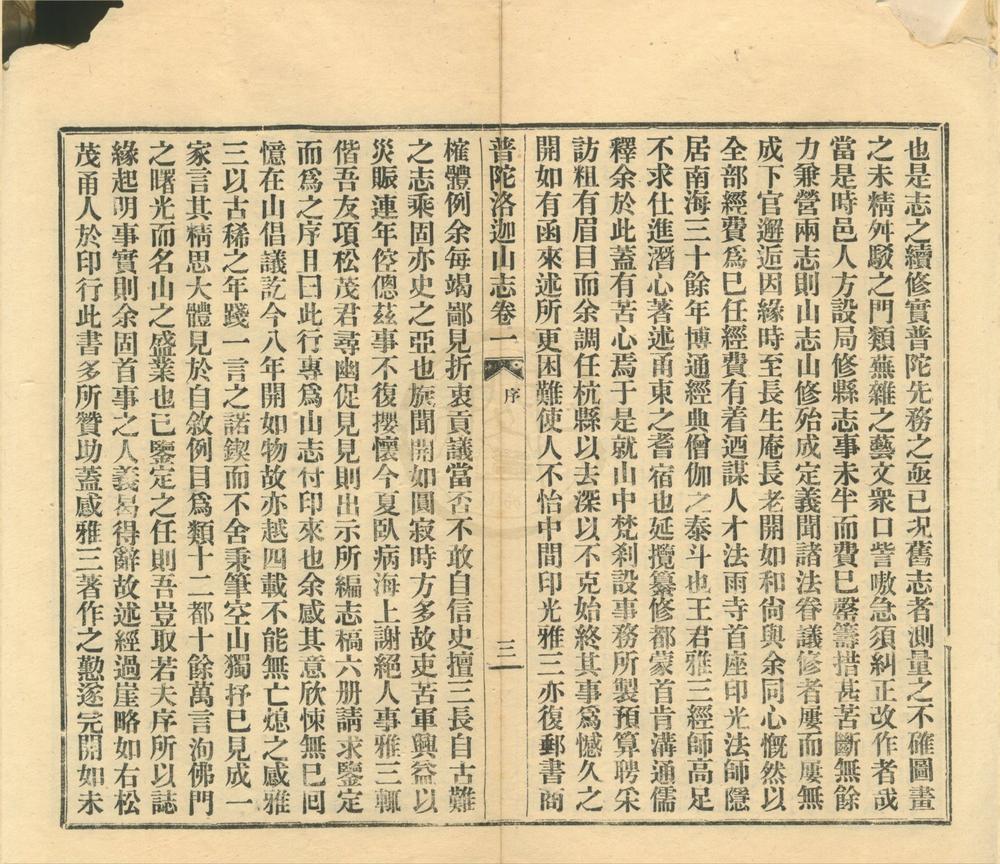 也是志之續修實普陀先務之亟已況舊志者測量之不確圖畫
之未精舛駁之門類蕪雜之藝文衆口訾嗷急須糾正改作者哉
當是時邑人方設局修縣志事未半而費已罄籌措甚苦斷無餘
力兼營兩志則山志山修殆成定義聞諸法眷議修者屢而屢無
成下官邂逅因緣時至長生庵長老開如和尙與余同心慨然以
全部經費爲已任經費有着迺謀人才法雨寺首座印光法師隱
居南海三十餘年博通經典僧伽之泰斗也王君雅三經師高足
不求仕進潛心著述甬東之耆宿也延攬纂修都蒙首肯溝通儒
釋余於此蓋有苦心焉于是就山中梵刹設事務所製預算聘采
訪粗有眉目而余調任杭縣以去深以不克始終其事爲憾久之
開如有函來述所更困難使人不怡中間印光雅三亦復郵書商
普陀洛迦山志卷一 序 三
榷體例余每竭鄙見折衷貢議當否不敢自信史擅三長自古難
之志乘固亦史之亞也旋聞開如圓寂時方多故吏苦軍興益以
災賑連年倥傯茲事不復攖懷今夏臥病海上謝絕人事雅三輒
偕吾友項松茂君尋幽促見見則出示所編志稿六册請求鑒定
而爲之序且曰此行專爲山志付印來也余感其意欣悚無已囘
憶在山倡議訖今八年開如物故亦越四載不能無亡熄之感雅
三以古稀之年踐一言之諾鍥而不舍秉筆空山獨抒已見成一
家言其精思大體見於自敘例目爲類十二都十餘萬言洵佛門
之曙光而名山之盛業也已鑒定之任則吾豈取若夫序所以誌
緣起明事實則余固首事之人義曷得辭故述經過崖略如右松
茂甬人於印行此書多所贊助蓋感雅三著作之懃遂完開如未